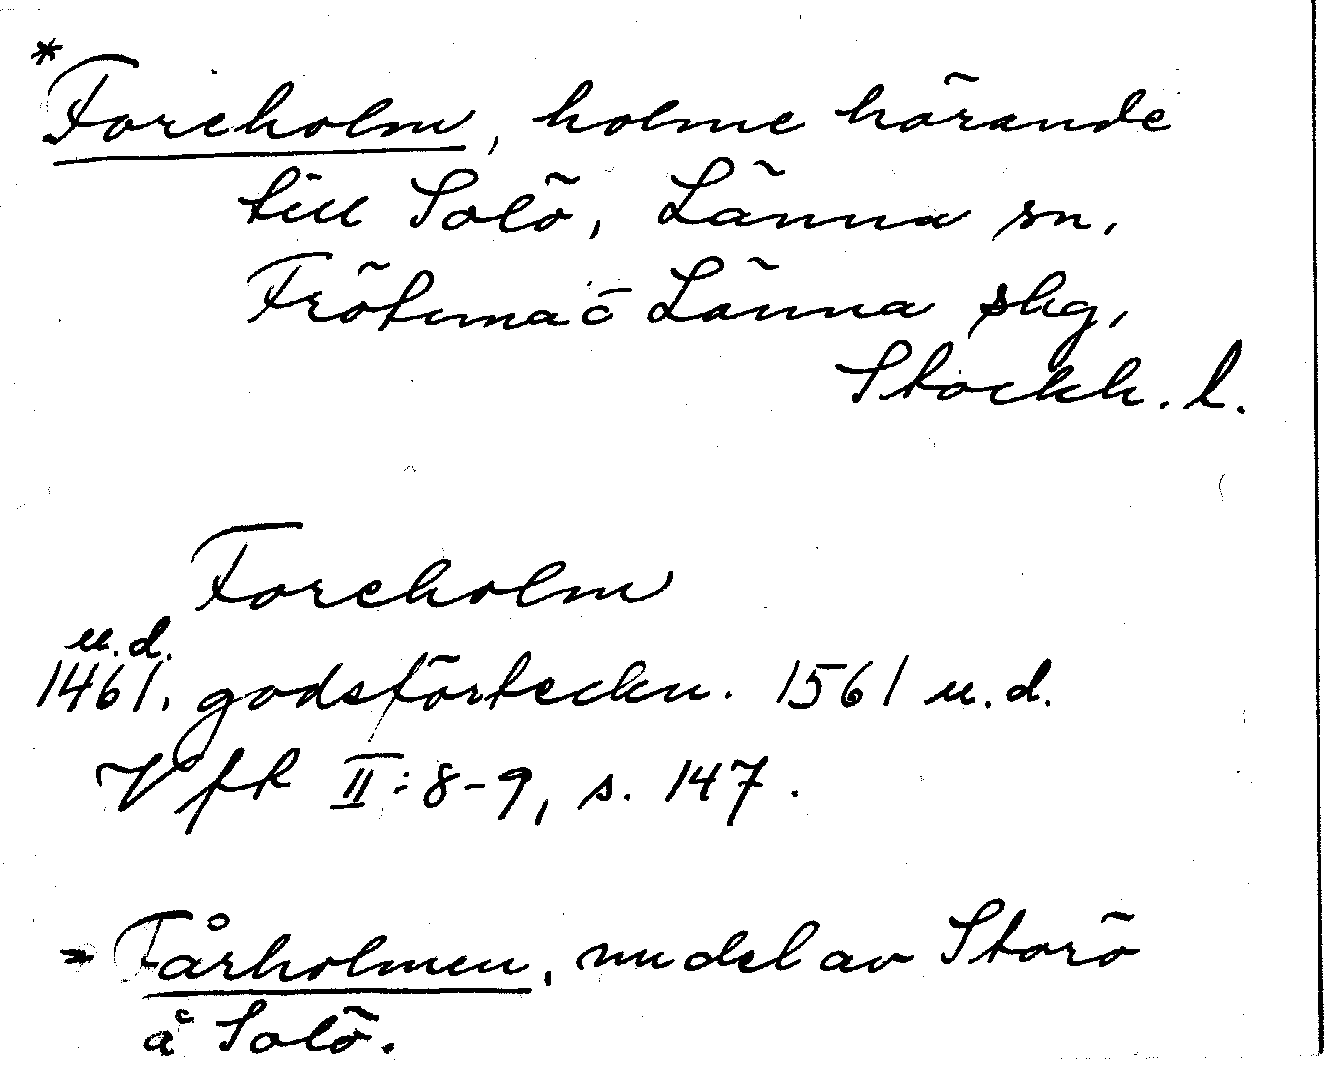 *Foreholm, holme hörande
till Solö, Länna sn,
Frötuna o Länna skg,
Stockh. l.
Foreholm
u.d.
1461. godsförteckn. 1561 u.d.
Vfk II:8-9, s. 147.
= Fårholmen, nu del av Storö
å Solö.